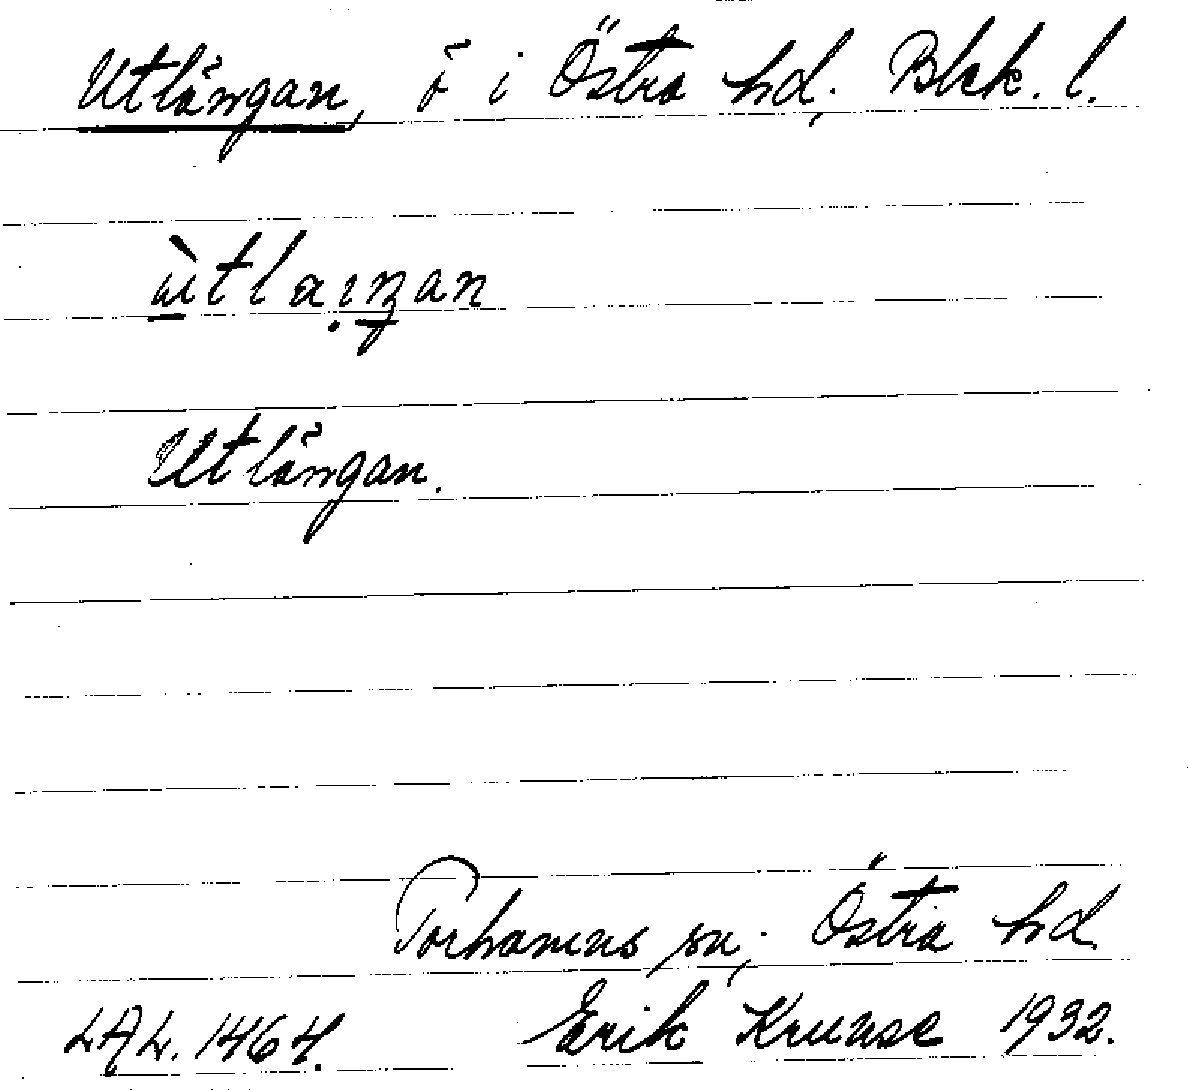 Utlängan, ö i Östra hd; Blek. l.
Utlängan.
Torhamns sn; Östra hd
LAL. 1464. Erik Kruuse 1932.